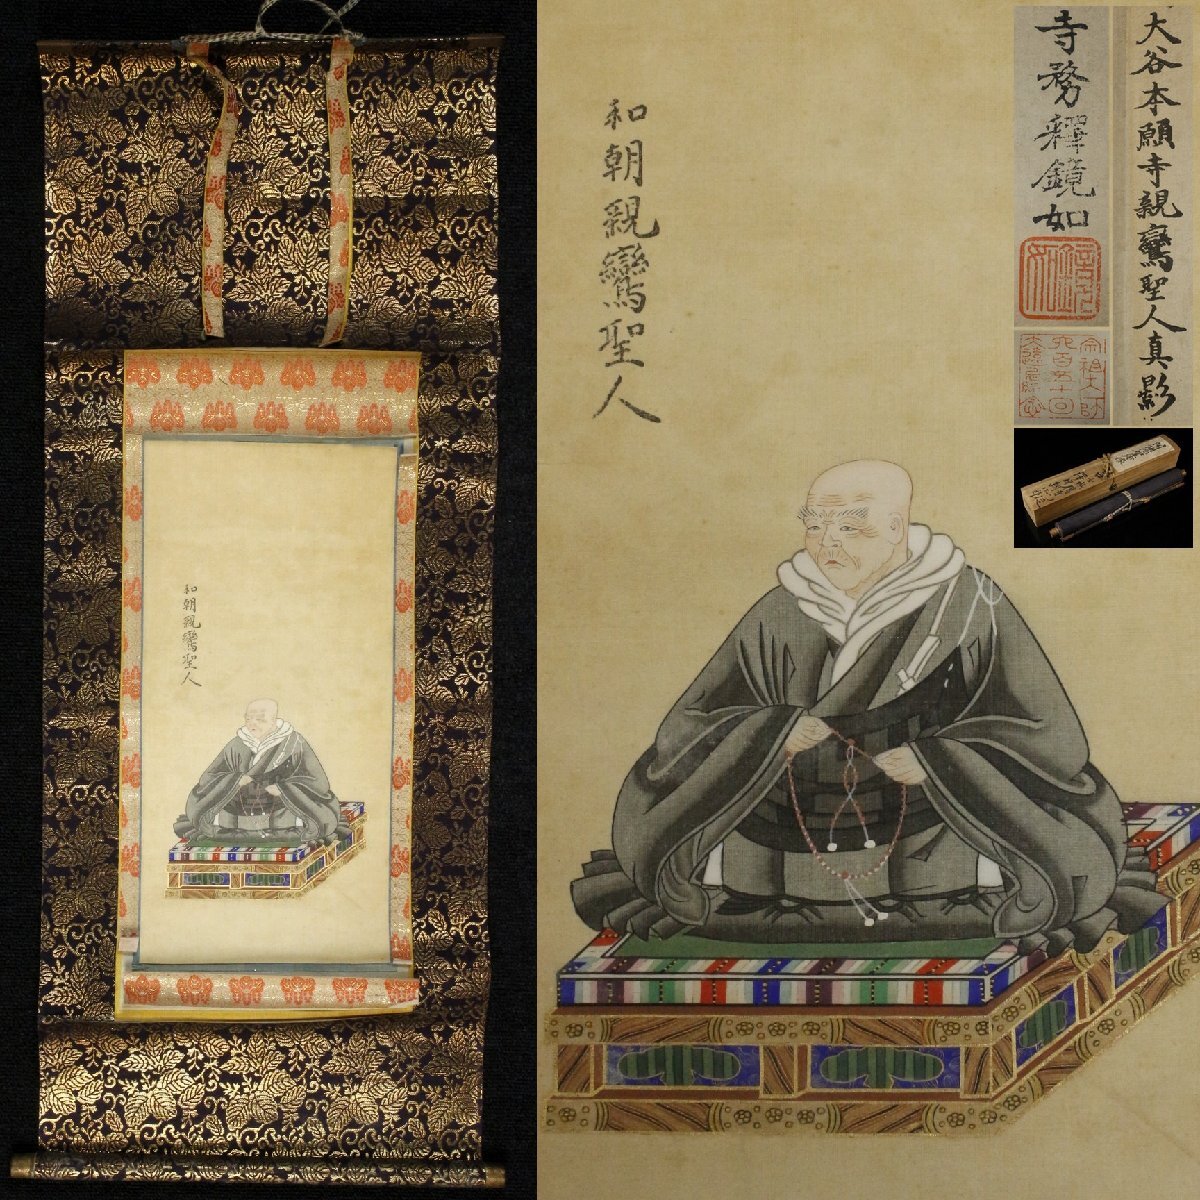 和朝親鸞聖人
和朝親鸞聖人
大谷本願寺親鸞聖人真影
寺務釋鏡如
鏡如
宗祖大師
六百五十回
大遠忌紀念